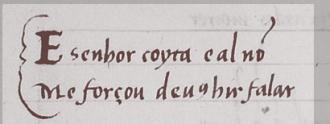 E senhor coyta e al nõ
Me forçou deuꝯ hir falar